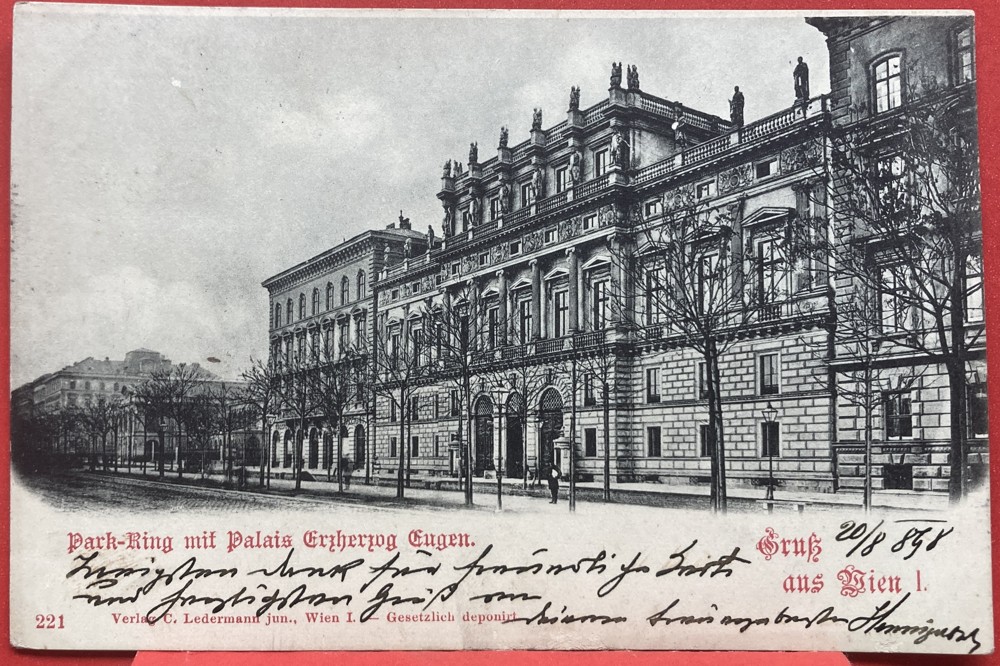 Park-Ring mit Palais Erzherzog Eugen.
Gruß
aus Wien I.
20/8 898
Innigsten dank für freundliche
und herzlichsten Gruß von
221
Verlag C. Ledermann jun., Wien I. — Gesetzlich deponirt
deinem